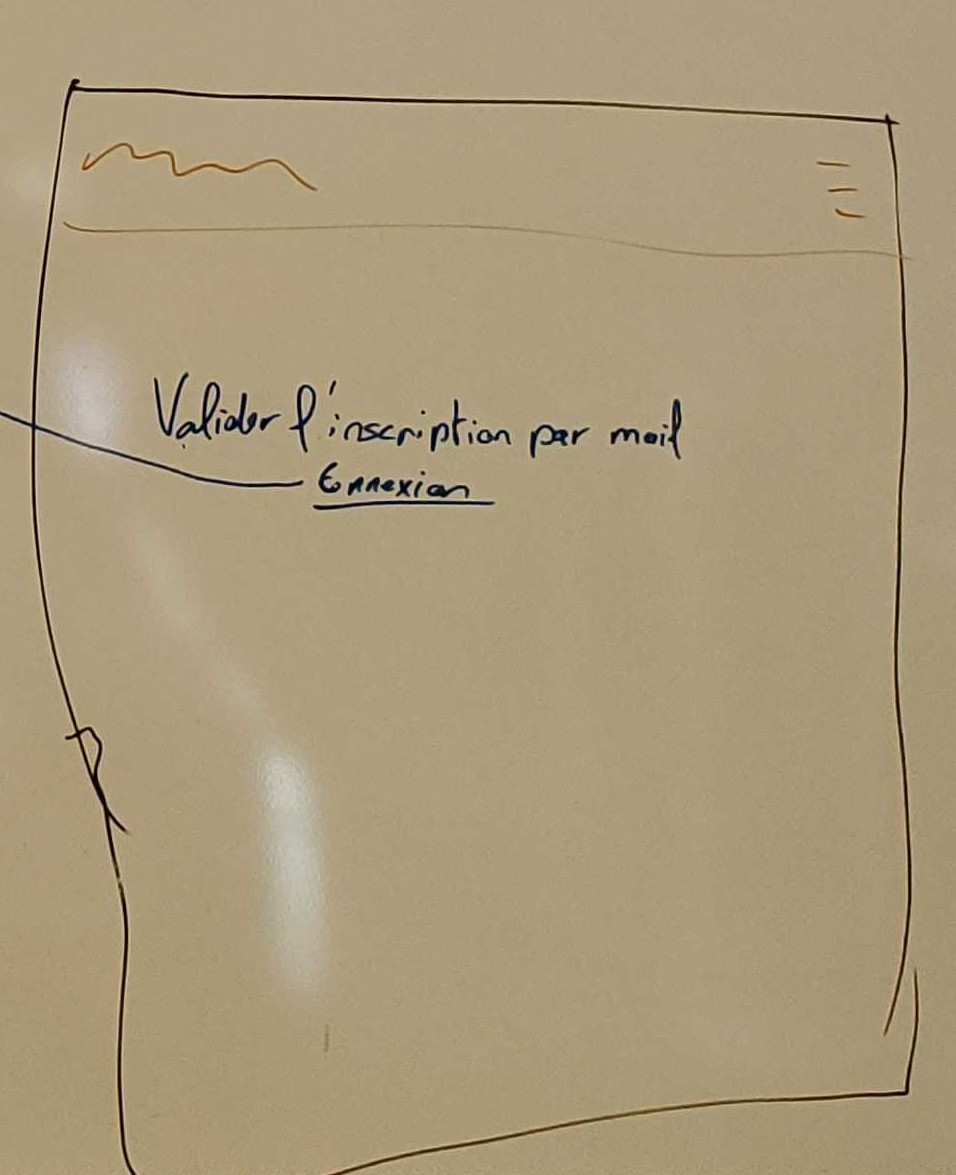 Valider l'inscription par mail
Connexion